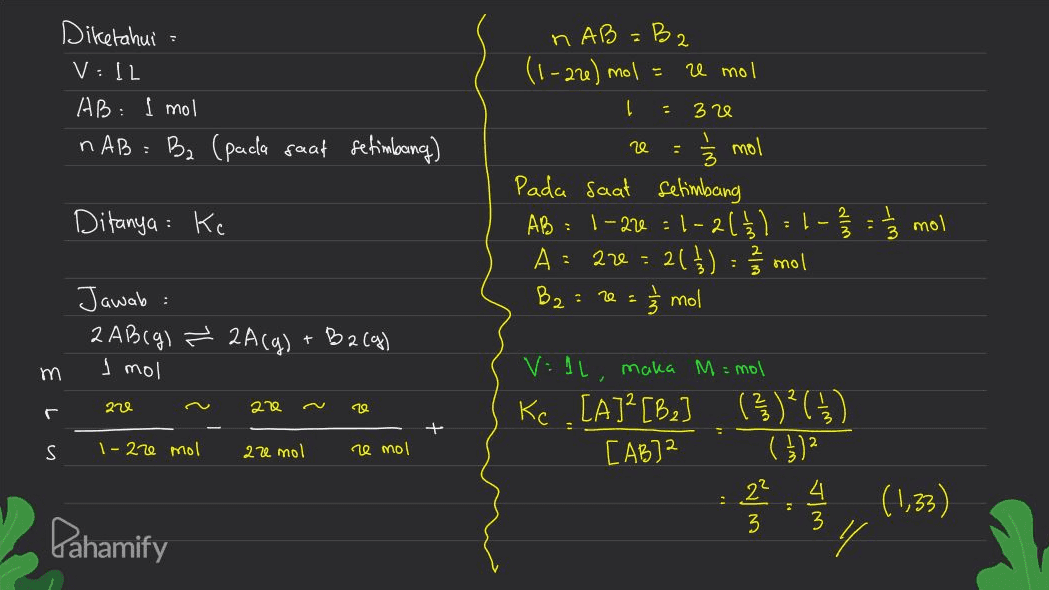 Diketahui =
V = 1L
AB = 1 mol
n AB = B2 (pada saat setimbang)
Ditanya : Kc
Jawab :
2AB(g) ⇌ 2A(g) + B2(g)
m 1 mol
r 2x ~ 2x ~ x
s 1-2x mol 2x mol x mol
- +
n AB = B2
(1-2x) mol = x mol
1 = 3x
x = 1/3 mol
Pada saat setimbang
AB = 1-2x = 1-2(1/3) = 1-2/3 = 1/3 mol
A = 2x = 2(1/3) = 2/3 mol
B2 = x = 1/3 mol
V = 1L, maka M = mol
Kc = [A]²[B2] / [AB]² = (2/3)²(1/3) / (1/3)²
= 2²/3 = 4/3 // (1,33)
Pahamify